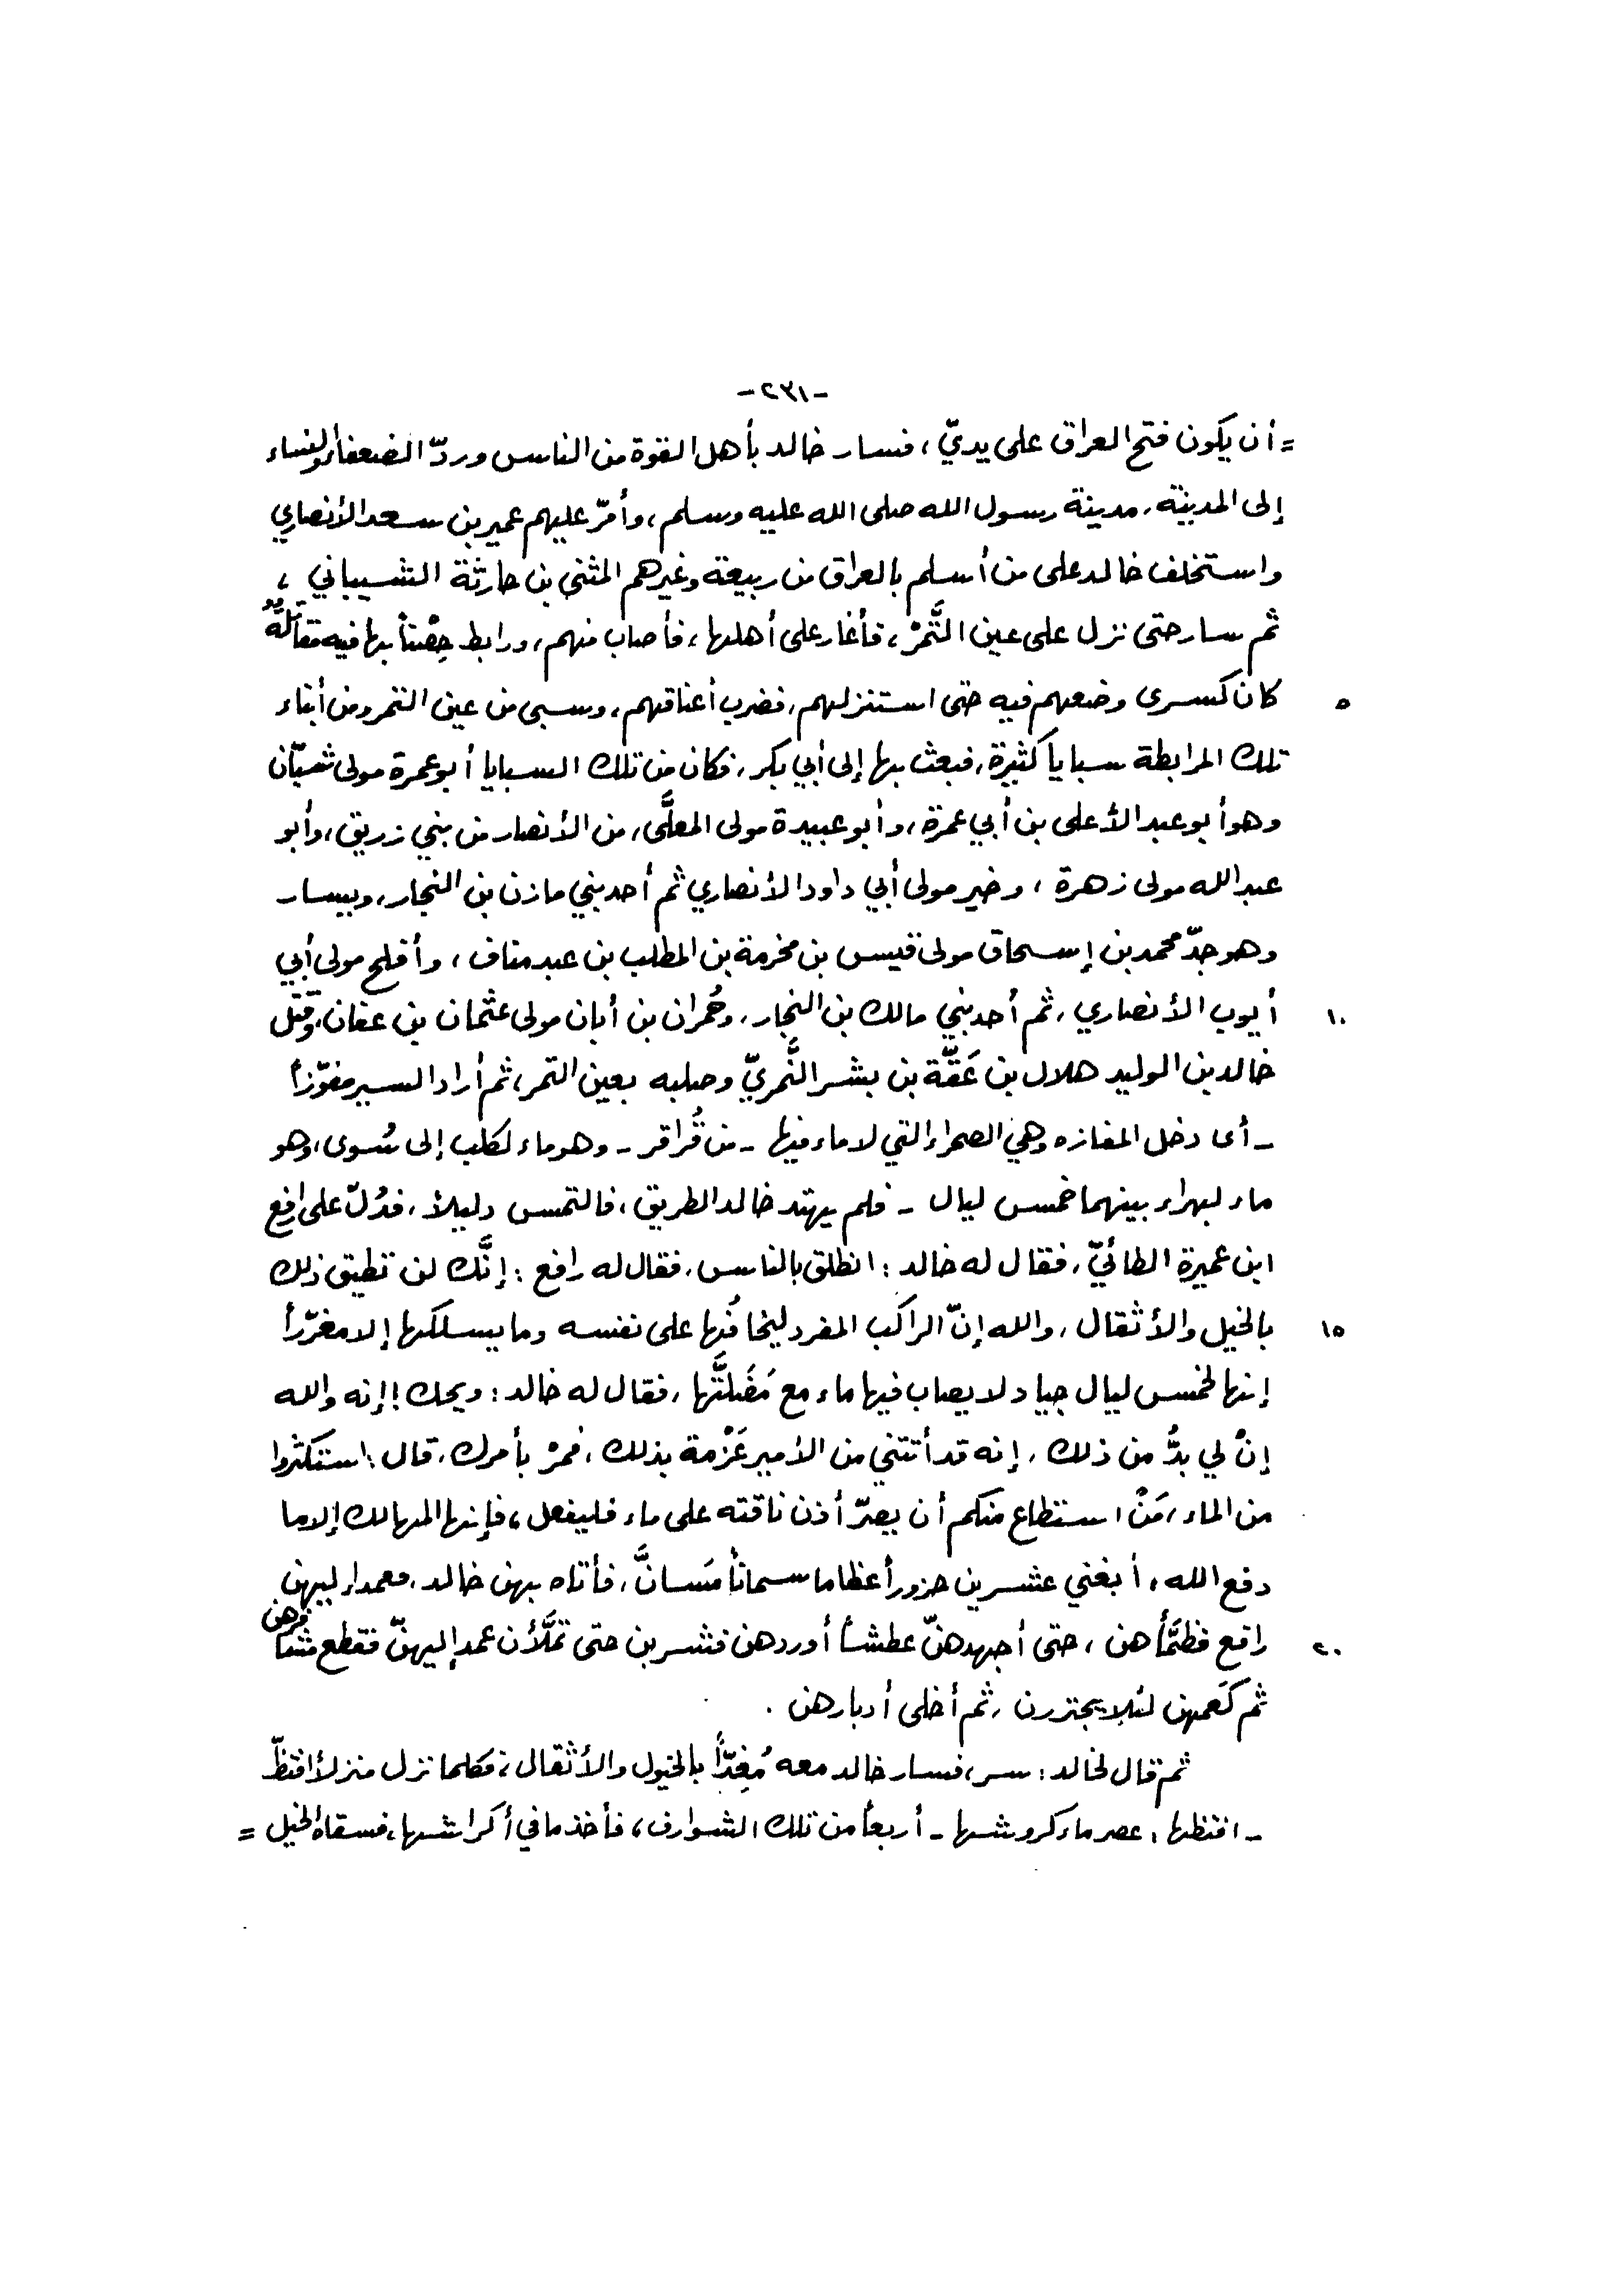 -٢٣١-
= أن يكون فتح العراق على يديّ، فسار خالد بأهل القوة من الناس وردّ الضعفاء والنساء
إلى المدينة، مدينة رسول الله صلى الله عليه وسلم، وأمّر عليهم عمير بن سعد الأنصاري
واستخلف خالد على من أسلم بالعراق من ربيعة وغيرهم المثنى بن حارثة الشيباني،
ثم سار حتى نزل على عين التَّمْر، فأغار على أهلها، فأصاب منهم، ورابط حِصْناً بها فيه مقاتلةٌ
٥ كان كسرى وضعهم فيه حتى استنزلهم، فضرب أعناقهم، وسبى من عين التمر ومن أبناء
تلك المرابطة سبايا كثيرة، فبعث بها إلى أبي بكر، فكان من تلك السبايا أبو عمرة مولى شبّان
وهو أبو عبد الأعلى بن أبي عمرة، وأبو عبيدة مولى المعلَّى، من الأنصار من بني زريق، وأبو
عبد الله مولى زهرة، وخير مولى أبي داود الأنصاري ثم أحد بني مازن بن النجار، ويسار
وهو جدّ محمد بن إسحاق مولى قيس بن مخرمة بن المطلب بن عبد مناف، وأفلح مولى أبي
١٠ أيوب الأنصاري، ثم أحد بني مالك بن النجار، وحُمران بن أبان مولى عثمان بن عفان، وقتل
خالد بن الوليد هلال بن عَقَّة بن بشر النَّمريّ وصلبه بعين التمر، ثم أراد السير مفوّزاً
- أى دخل المفازه وهي الصحراء التي لا ماء فيها - من قُراقر - وهو ماء لكلب إلى سُوى، وهو
ماء لبهراء بينهما خمس ليال - فلم يهتد خالد الطريق، فالتمس دليلاً، فدُلّ على رافع
ابن عميرة الطائيّ، فقال له خالد: انطلق بالناس، فقال له رافع: إنَّك لن تطيق ذلك
١٥ بالخيل والأثقال، والله إنّ الراكب المفرد ليخافُها على نفسه وما يسلكها إلا مغرّراً
إنها لخمس ليال جياد لا يصاب فيها ماء مع مَضَلَّتها، فقال له خالد: ويحك! إنه والله
إنْ لي بدُّ من ذلك، إنه قد أتتني من الأمير عَزْمة بذلك، فمرْ بأمرك، قال: استكثروا
من الماء، مَنْ استطاع منكم أن يصرّ أذن ناقته على ماء فليفعل، فإنها المهالك إلا ما
دفع الله، أبغني عشرين جزوراً عظاما سماناً مَسانَّ، فأتاه بهن خالد، فعمد إليهن
٢٠ رافع فظمَّأهن، حتى أجهدهنّ عطشاً أوردهن فشربن حتى تملَّأن عمد إليهنّ فقطع مشافرهن
ثم كعمهن لئلا يجتررن، ثم أخلى أدبارهن.
ثم قال لخالد: سر، فسار خالد معه مُغِذّاً بالخيول والأثقال، فكلما نزل منزلاً افتظّ
- افتظها: عصر ماء كروشها - أربعاً من تلك الشوارف، فأخذ ما في أكراشها، فسقاه الخيل =